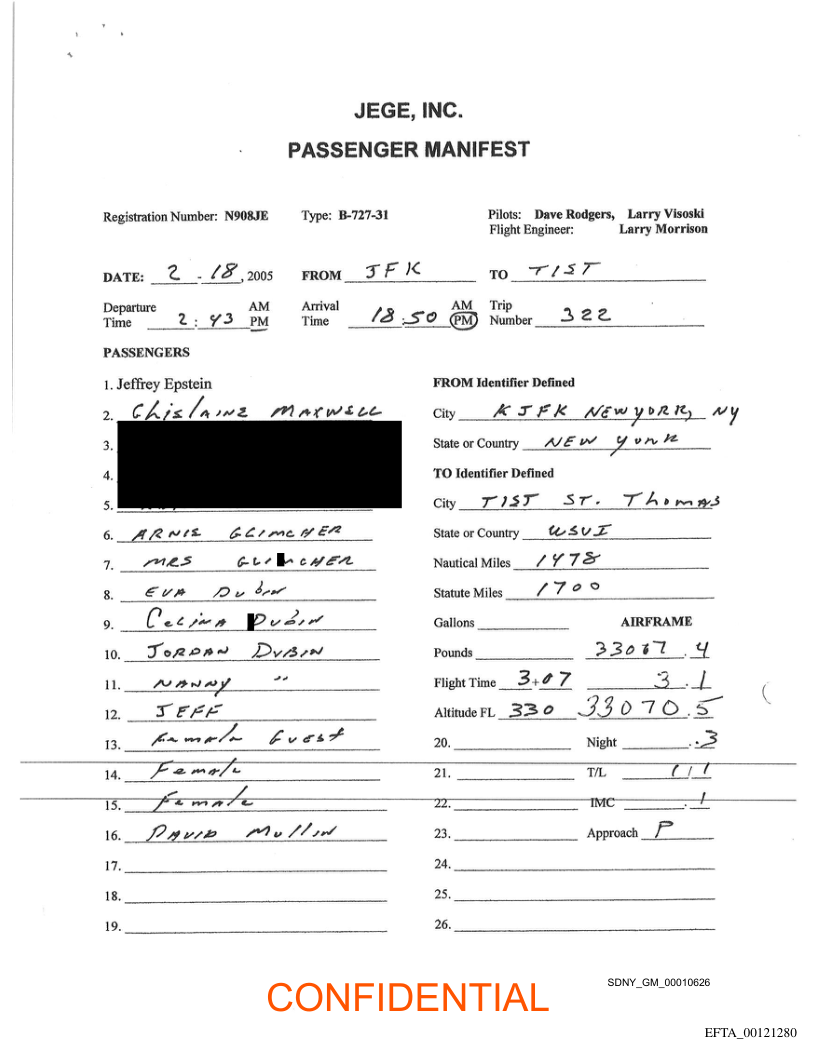 JEGE, INC.
PASSENGER MANIFEST
Registration Number: N908JE Type: B-727-31 Pilots: Dave Rodgers, Larry Visoski
Flight Engineer: Larry Morrison
DATE: 2 - 18, 2005 FROM JFK TO TIST
Departure Time 2:43 AM PM Arrival Time 18:50 AM PM Trip Number 322
PASSENGERS
1. Jeffrey Epstein
2. Ghislaine MAXWELL
3.
4.
5.
6. ARNIE GLIMCHER
7. MRS GLI CHER
8. EVA Dubin
9. CELINA DUBIN
10. JORDAN DUBIN
11. NANNY "
12. JEFF
13. Female Guest
14. Female
15. Female
16. DAVID Mullin
17.
18.
19.
FROM Identifier Defined
City KJFK NEW YORK, NY
State or Country NEW YORK
TO Identifier Defined
City TIST ST. Thomas
State or Country USVI
Nautical Miles 1478
Statute Miles 1700
Gallons AIRFRAME
Pounds 33067.4
Flight Time 3+07 3.1
Altitude FL 330 33070.5
20. Night .3
21. T/L 1/1
22. IMC .1
23. Approach P
24.
25.
26.
CONFIDENTIAL
SDNY_GM_00010626
EFTA_00121280